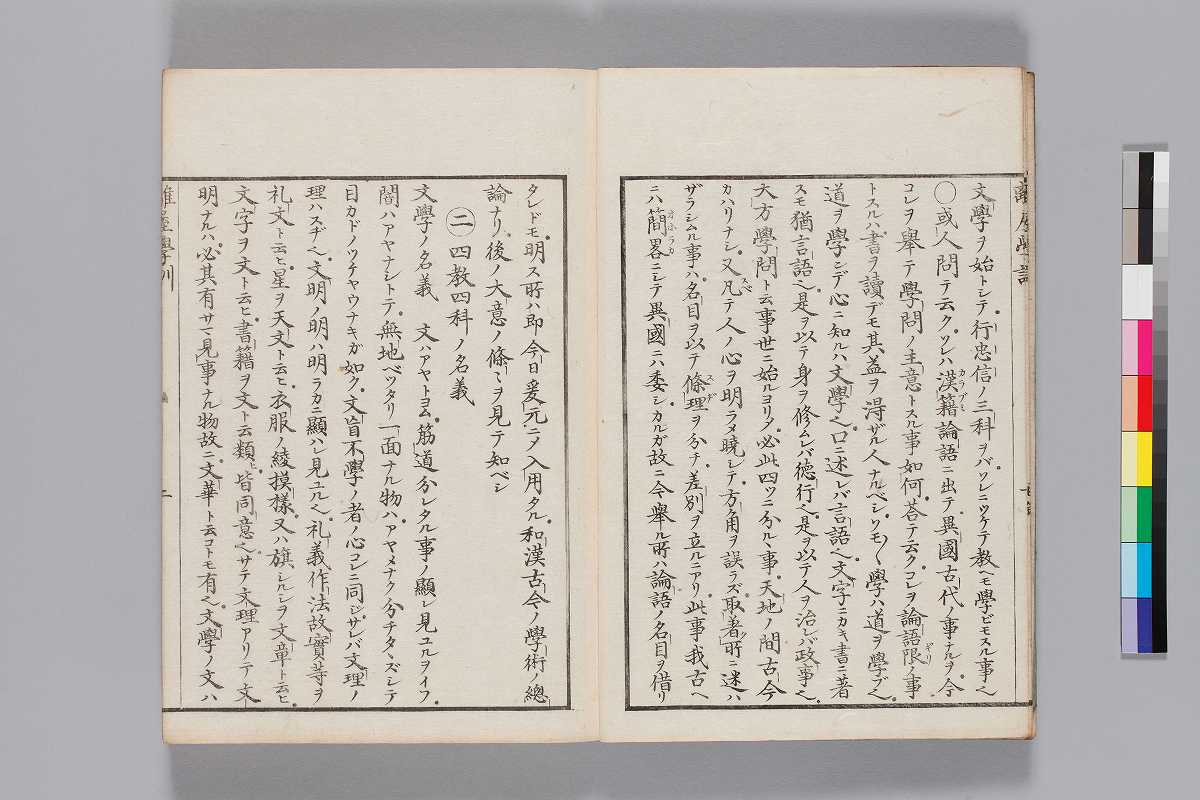 文學ヲ始トシテ。行忠信ノ三科ヲバソレニツケテ教ヘモ學ビモスル事ヘ
○或人問テ云ク。ソレハ漢籍論語ニ出テ異國古代ノ事ナルヲ。今
コレヲ舉テ學問ノ主意トスル事如何。荅テ云ク。コレヲ論語限ノ事
トスルハ。書ヲ讀デモ其益ヲ淂ザル人ナルベシ。ソモ〱學ハ道ヲ學ブヘ。
道ヲ學ンデ心ニ知ルハ文學ヘ。口ニ述レバ言語ヘ。文字ニカキ書ニ著
スモ猶言語ヘ。是ヲ以テ身ヲ修ムレバ徳行ヘ。是ヲ以テ人ヲ治レバ政事ヘ。
大方學問ト云事世ニ始ルヨリ。必此四ツニ分ルヽ事。天地ノ間古今
カハリナシ。又凡テ人ノ心ヲ明ラメ曉シテ。方角ヲ誤ラズ。取著所ニ迷ハ
ザラシムル事ハ。名目ヲ以テ條理ヲ分チ。差別ヲ立ルニアリ。此事我古ヘ
ニハ簡畧ニシテ。異國ニハ委シ。カルガ故ニ今舉ル所ハ論語ノ名目ヲ借リ
タレドモ。明ス所ハ即今日爰元ニテノ入用タル。和漢古今ノ學術ノ總
論ナリ。後ノ大意ノ條〻ヲ見テ知ベシ
㊁四教四科ノ名義
文學ノ名義　文ハアヤトヨム。筋道分レタル事ノ顯レ見ユルヲイフ。
闇ハアヤナシトテ。無地ベツタリ一面ナル物ハ。アヤメナク分チタヽズシテ
目カドノツケヤウナキガ如ク。文盲不學ノ者ノ心コレニ同ジ。サレバ文理ノ
理ハスヂヘ。文明ノ明ハ明ラカニ顯ハレ見ユルヘ。礼義作法故實等ヲ
礼文ト云ヒ。星ヲ天文ト云ヒ。衣服ノ綾摸樣。又ハ旗シルシヲ文章ト云ヒ。
文字ヲ文ト云ヒ。書籍ヲ文ト云類ヒ。皆同意ヘ。サテ文理アリテ文
明ナルハ。必其有サマ見事ナル物故ニ。文華ト云コトモ有ヘ。文學ノ文ハ